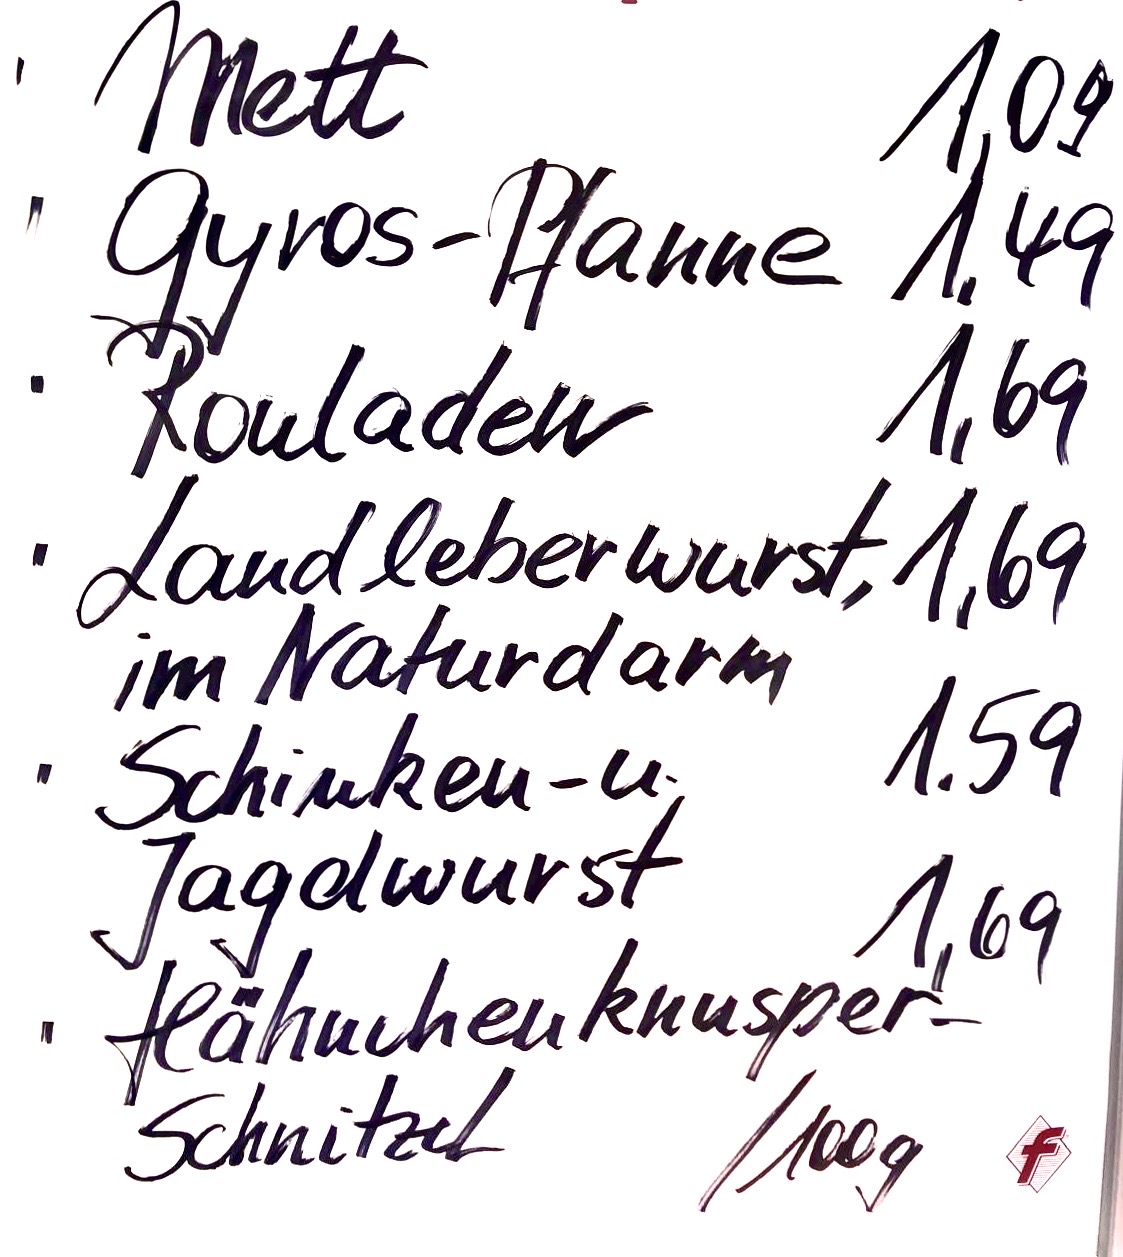 ' Mett 1,09
' Gyros-Pfanne 1.49
· Rouladen 1,69
' Landleberwurst, 1,69
im Naturdarm
' Schinken-u. 1.59
Jagdwurst
' Hähnchenknusper- 1,69
Schnitzel /100g
f